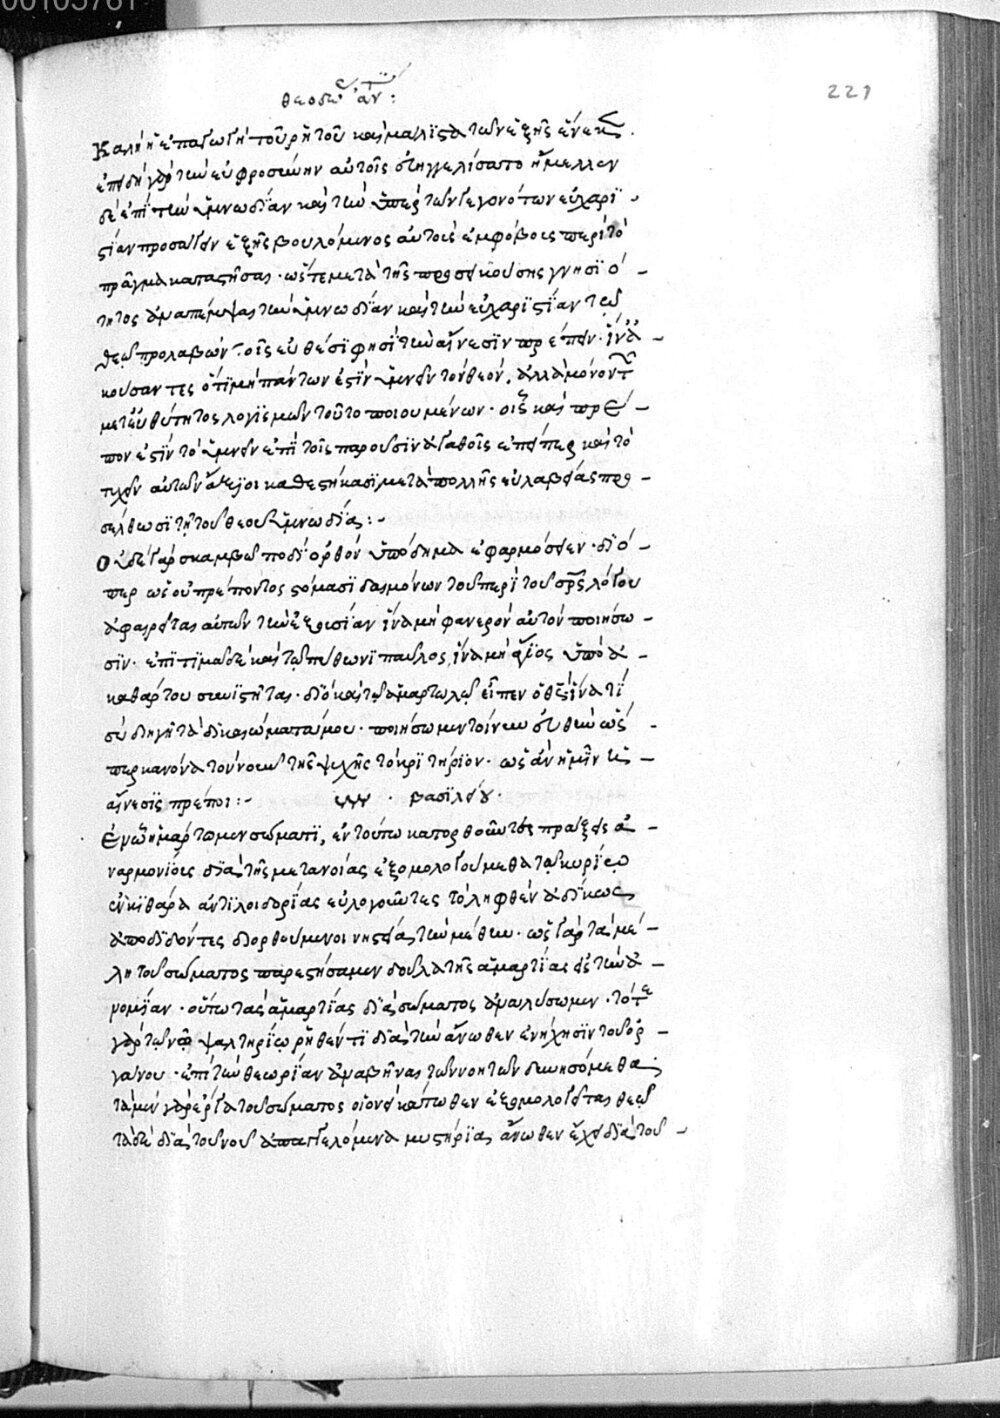 00105761
θεοδώ ἀν:
221
Καλὴ ἡ ἐπαγωγὴ τοῦ ῥητοῦ καὶ μάλιστα τῶν ἑξῆς ἕνεκεν.
ἐπειδὴ γὰρ τὴν εὐφροσύνην αὐτοῖς εὐηγγελίσατο ἤμελλεν
δὲ ἐπὶ τὴν ὑμνωδίαν καὶ τὴν ὑπὲρ τῶν γεγονότων εὐχαρι
στίαν προσάγειν ἑξῆς βουλόμενος αὐτοὺς ἐμφόβους περὶ τὸ
πρᾶγμα καταστῆσαι· ὥστε μετὰ τῆς προσηκούσης γνησιό
τητος ἀναπέμψαι τὴν ὑμνωδίαν καὶ τὴν εὐχαριστίαν τῷ
θεῷ προλαβὼν· τοῖς εὐθέσι φησὶ τὴν αἴνεσιν πρέπειν· ἵνα ἀ
κούσαντες ὅτι μὴ πάντων ἐστὶν ὑμνεῖν τὸν θεόν, ἀλλὰ μόνον τῶν
μετ' εὐθύτητος λογισμῶν τοῦτο ποιουμένων· οἷς καὶ πρέ
πον ἐστὶν τὸ ὑμνεῖν ἐπὶ τοῖς παροῦσιν ἀγαθοῖς ἐπείπερ καὶ τὸ
τυχεῖν αὐτῶν ἄξιοι καθεστήκασι μετὰ πολλῆς εὐλαβείας προ
σέλθωσι τῇ τοῦ θεοῦ ὑμνωδίᾳ:
Οὐδὲ γὰρ σκαμβῷ ποδὶ ὀρθὸν ὑπόδημα ἐφαρμόσειεν· διό
περ ὡς οὐ πρέποντος στόμασι δαιμόνων τοῦ περὶ τοῦ σρς λόγου
ἀφαιρεῖται αὐτῶν τὴν ἐξουσίαν ἵνα μὴ φανερὸν αὐτὸν ποιήσω
σιν· ἐπιτιμᾶ δὲ καὶ τῷ πύθωνι παῦλος, ἵνα μὴ ἅγιος ὑπὸ ἀ
καθάρτου συνιστῆται· διὸ καὶ τῷ ἁμαρτωλῷ εἶπεν ὁ θς ἵνα τί
σὺ διηγῆ τὰ δικαιώματά μου· ποιήσωμεν τοίνυν εὐθὺν ὥσ
περ κανόνα τὸν νοῦν τῆς ψυχῆς τὸ κριτήριον· ὡς ἂν ἡμῖν ἡ
αἴνεσις πρέποι:
βασιλείου·
Ἐν ᾧ ἡμάρτομεν σώματι, ἐν τούτω κατορθοῦντες πράξεις ἐ
ναρμονίους διὰ τῆς μετανοίας ἐξομολογούμεθα τῷ κυρίῳ
ἐν κιθάρα ἀντὶ λοιδορίας εὐλογοῦντες τὸ ληφθὲν ἀδίκως
ἀποδιδόντες διορθούμενοι νηστείας τὴν μέθην· ὡς γὰρ τὰ μέ
λη τοῦ σώματος παρεστήσαμεν δοῦλα τῆς ἁμαρτίας εἰς τὴν ἀ
νομίαν· οὕτω τὰς ἁμαρτίας διὰ σώματος ἀναλύσωμεν· τότε
γὰρ τῷ νῷ ψαλτηρίῳ ῥηθέντι διὰ τὴν ἄνωθεν ἐνήχησιν τοῦ ὀρ
γάνου· ἐπὶ τὴν θεωρίαν ἀναβῆναι τῶν νοητῶν δυνησόμεθα·
τὰ μὲν γὰρ ἔργα τοῦ σώματος οἱονεὶ κάτωθεν ἐξομολογεῖται θεῷ
τὰ δὲ διὰ τοῦ νοῦ ἀπαγγελόμενα μυστήρια ἄνωθεν ἔχει διὰ τοῦ